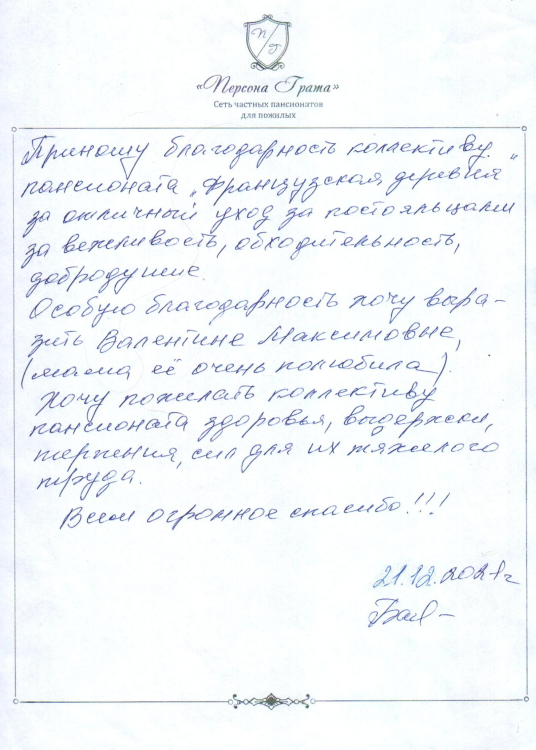 П
Г
«Персона Грата»
Сеть частных пансионатов
для пожилых
Приношу благодарность коллективу
пансионата „Французская деревня"
за отличный уход за постояльцами
за вежливость, обходительность,
добродушие.
Особую благодарность хочу выра-
зить Валентине Максимовне,
(мама её очень полюбила).
Хочу пожелать коллективу
пансионата здоровья, выдержки,
терпения, сил для их тяжелого
труда.
Всем огромное спасибо!!!
21.12.2021г